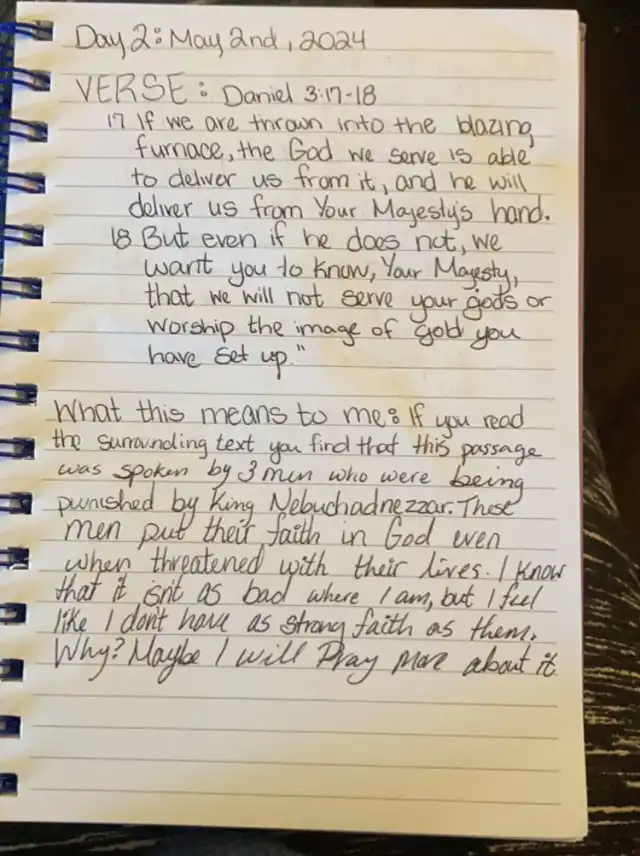 Day 2: May 2nd, 2024
VERSE: Daniel 3:17-18
17 If we are thrown into the blazing
furnace, the God we serve is able
to deliver us from it, and he will
deliver us from Your Majesty's hand.
18 But even if he does not, we
want you to know, Your Majesty,
that we will not serve your gods or
worship the image of gold you
have set up."
What this means to me: If you read
the surrounding text you find that this passage
was spoken by 3 men who were being
punished by King Nebuchadnezzar. These
men put their faith in God even
when threatened with their lives. I know
that it isn't as bad where I am, but I feel
like I don't have as strong faith as them.
Why? Maybe I will Pray more about it